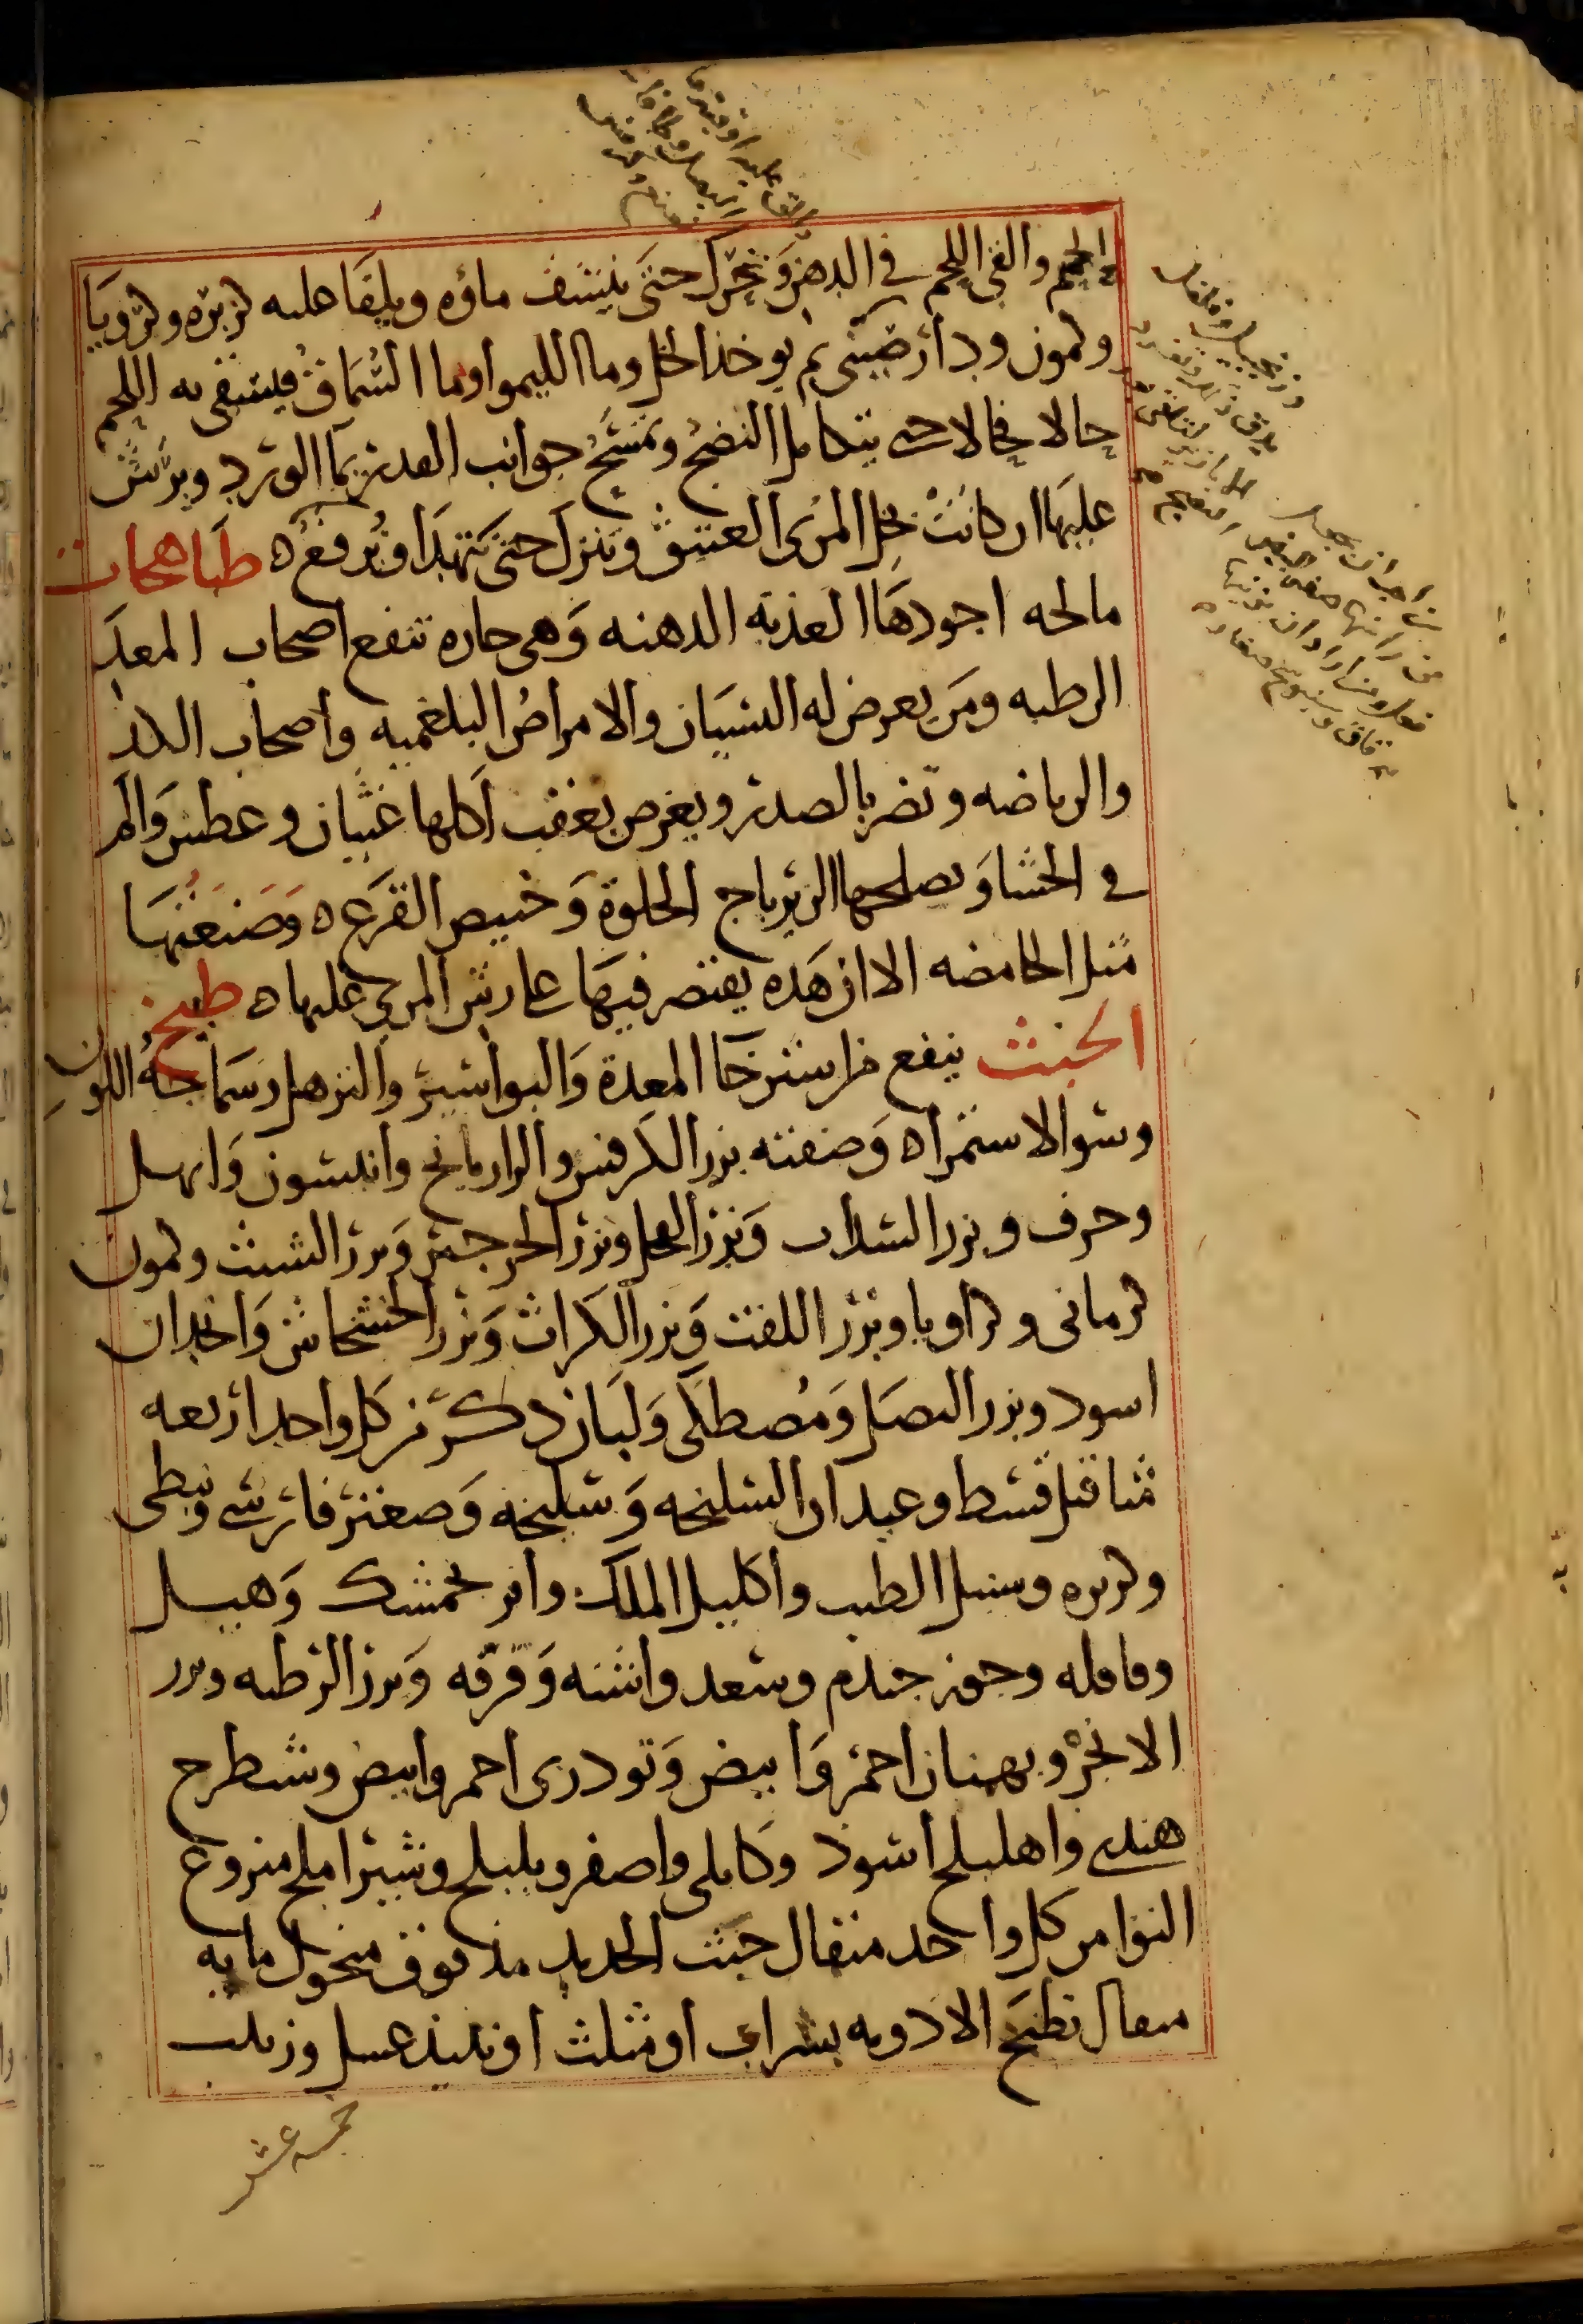 اللحم والقى اللحم فى الدهن وتحرك حتى ينشف ماؤه ويلقا عليه كزبره وكرويا
وكمون ودارصينى ثم يوخذ الخل وما الليموا وما السماق فيسقى به اللحم
حالا فحالا حتى يتكامل النضج وتمسح جوانب القدر بما الورد ويرش
عليها ان كانت بخل المرى العتيق وتنزل حتى تهدا وترفع ه طباهجات
مالحه اجودها العذبه الدهنه وهى حاره تنفع اصحاب المعد
الرطبه ومن يعرض له النسيان والامراض البلغميه واصحاب الكد
والرياضه وتضر بالصدر ويعرض بعقب اكلها غثيان وعطش والم
فى الحشا ويصلحها الزيرباج الحلوة وخبيص القرع ه وصنعتها
مثل الحامضه الا ان هذه يقتصر فيها على رش المرى عليها ه طبيخ
الخبث ينفع من استرخا المعدة والبواسير والترهل وسماجة اللون
وسو الاستمرا ه وصفته بزر الكرفس والرازيانج وانيسون وابهل
وحرف وبزر السداب وبزر الفجل وبزر الجرجير وبزر الشبث وكمون
كرمانى وكراويا وبزر اللفت وبزر الكراث وبزر الخشخاش وانجدان
اسود وبزر البصل ومصطكى ولبان ذكر من كل واحد اربعه
مثاقيل قسط وعيدان السليخه وسليخه وصعتر فارسى ونبطى
وكزبره وسنبل الطيب واكليل الملك وافرنجمشك وهيل
وقاقله وجوز جندم وسعد واشنه وقرفه وبزر الرطبه وبزر
الانجره وبهمنان احمر وابيض وتودرى احمر وابيض وشيطرج
هندى واهليلج اسود وكابلى واصفر وبليلج وشير املج منزوع
النوا من كل واحد مثقال خبث الحديد مدقوق منخول مايه
مثقال تطبخ الادويه بشراب او مثلث او نبيذ عسل وزبيب
خمسه عشر